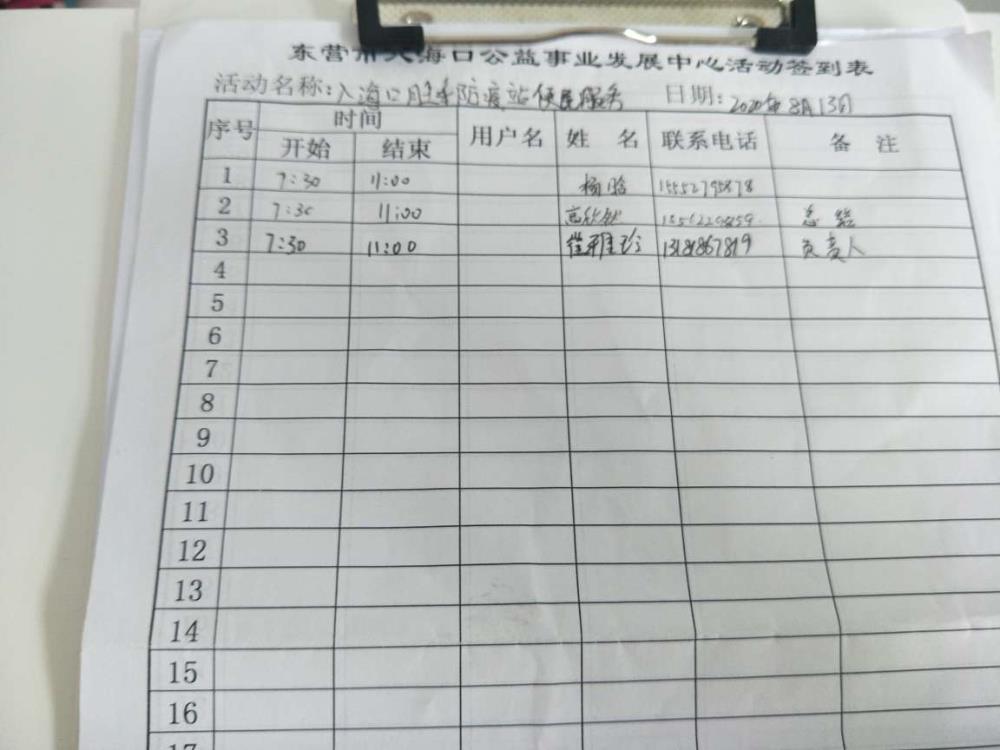 东营市入海口公益事业发展中心活动签到表
活动名称:入海口胜采防疫站便民服务 日期:2020年8月13日
序号 时间 用户名 姓 名 联系电话 备 注
开始 结束
1 7:30 11:00 杨晗 15552795878
2 7:30 11:00 总结
3 7:30 11:00 负责人
4
5
6
7
8
9
10
11
12
13
14
15
16
17